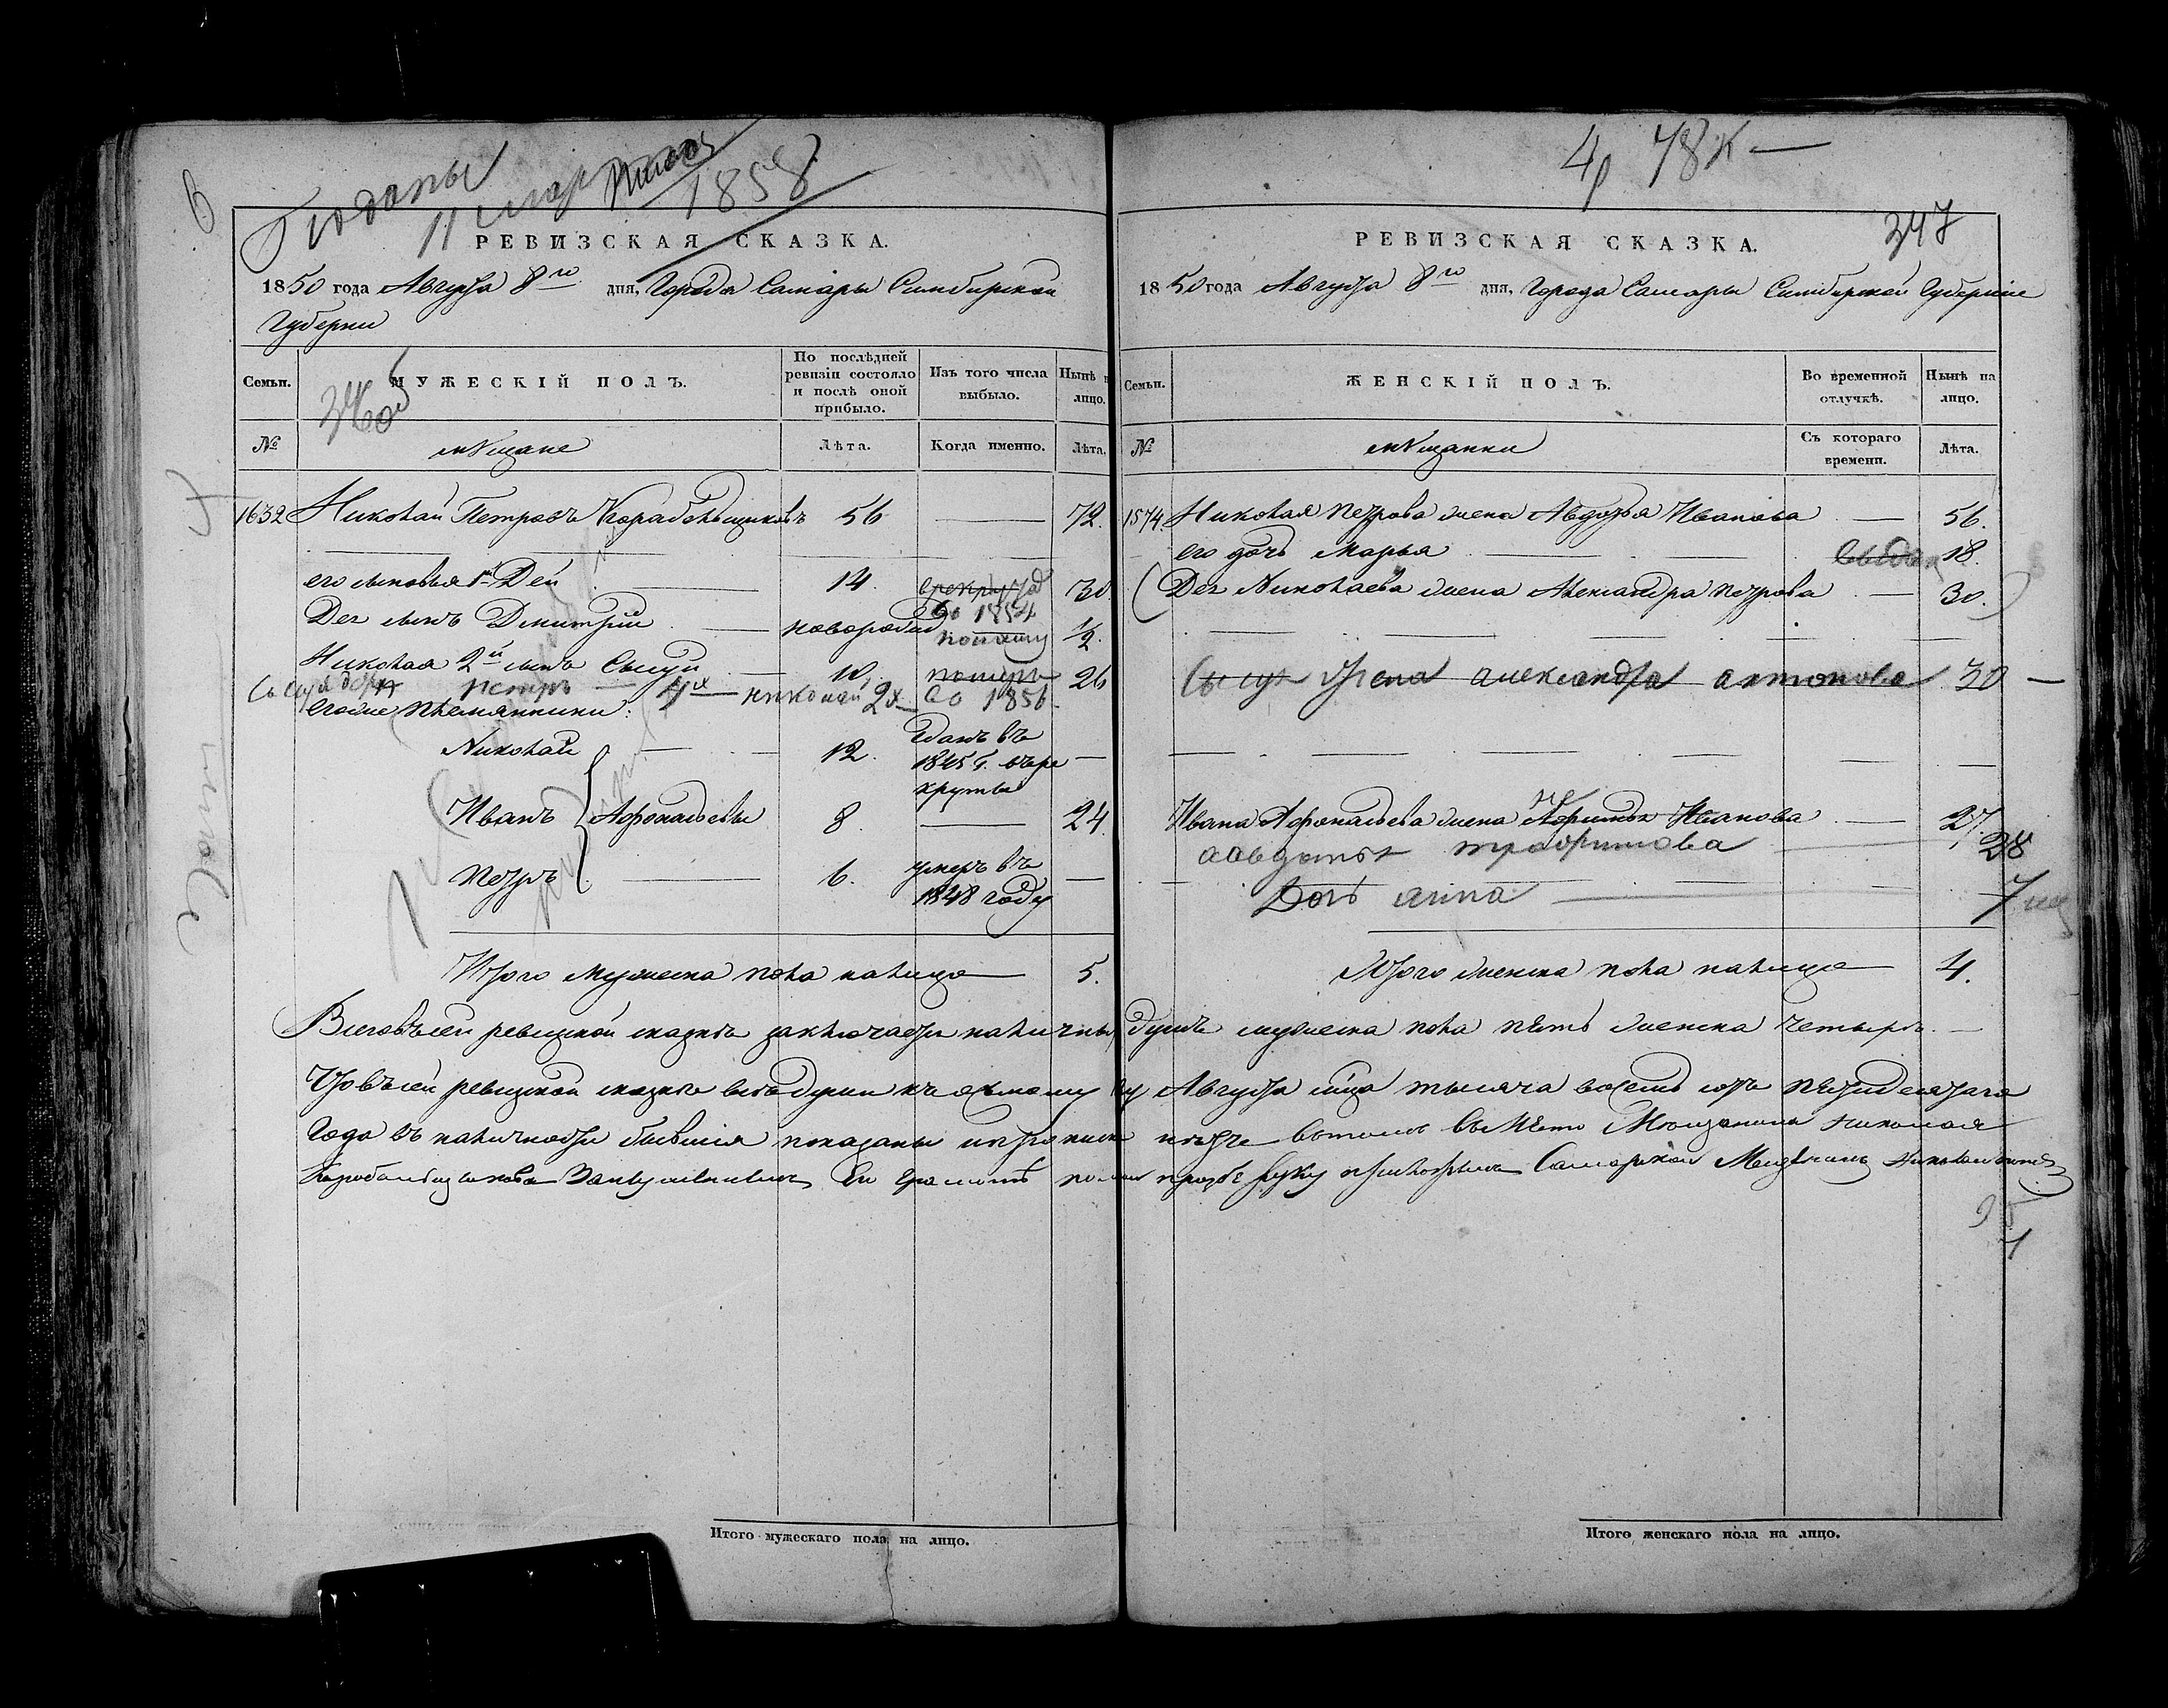 6
Поданы
11 март
1858
РЕВИЗСКАЯ СКАЗКА.
1850 года Августа 8го дня, Города Самары Симбирской
Губернии
Семьи. МУЖЕСКІЙ ПОЛЪ. По послѣдней ревизіи состояло и послѣ оной прибыло. Изъ того числа выбыло. Нынѣ на лицо.
№ мѣщане Лѣта. Когда именно. Лѣта.
1632 Николай Петровъ Корабельщиковъ 56 72.
его сыновья 1й Дей 14. 30
Дея сынъ Дмитрій новорожд 1/2.
Николая 2й сынъ Сысуй 10, померъ 26
Петръ 4х Николай 2х во 1856
его же племянники:
Николай 12. Отданъ въ 1845 г. въ рекруты —
Иванъ Афонасьевы 8. 24.
Петръ 6. умеръ въ 1848 году —
Итого мужеска пола налицо 5.
4р 78к —
347
РЕВИЗСКАЯ СКАЗКА.
1850 года Августа 8го дня, Города Самары Симбирской Губернии
Семьи. ЖЕНСКІЙ ПОЛЪ. Во временной отлучкѣ. Нынѣ на лицо.
№ мѣщанки Съ котораго времени. Лѣта.
1574 Николая Петрова жена Авдотья Иванова 56.
его дочь Марья 18.
(Дея Николаева жена Александра Петрова 30.)
Сысуя жена александра антонова 30 —
Ивана Афонасьева жена Иванова 27.
28
Дочь анна 7
Итого женска пола налицо 4.
Всего въ сей ревизской сказкѣ заключается наличныхъ душъ мужеска пола пять женска четыре.
Что въ сей ревизской сказке все души къ осьмому ч. Августа м͠ца тысяча восемь сотъ пятидесятаго
Года въ наличности бывшия показаны и в томъ вместо Мещанина Николая
руку приложилъ Самарской Мещанинъ
Итого мужескаго пола на лицо.
Итого женскаго пола на лицо.